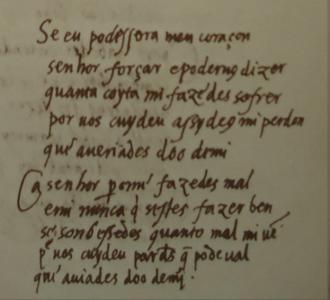 Se eu podessora meu coraçon
senhor forçar epoderuꝯ dizer
quanta coyta mi fazedes sofrer
por uos cuydeu assydeꝯ mi perdon
que aueriades doo demi
Ca senhor fazedes mal
emi nunca q̄ sestes fazer ben
quanto mal mi uē
uos cuydeu pardꝰ q̄ podeual
que auiades doo demj.